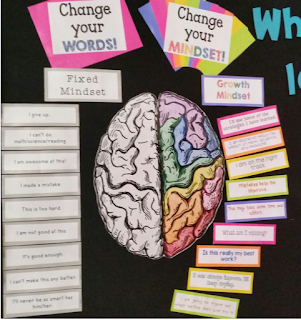 Change
your
WORDS!
Change
your
MINDSET!
Wh
Fixed
Mindset
Growth
Mindset
I give up.
I can't do
math/science/reading.
I am awesome at this!
I made a mistake
This is too hard.
I am not good at this.
It's good enough.
I can't make this any better.
I'll never be as smart as
I'll use some of the
strategies I have learned
I am on the right
track.
Mistakes help me
improve
This may take some time and
effort.
What am I missing?
Is this really my best
work?
I can always improve, I'll
keep trying.